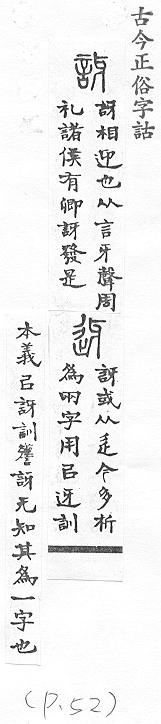 古今正俗字詁
訝
訝相迎也从言牙聲周
礼諸侯有卿訝發是
迓
訝或从辵今多析
為兩字用㠯迓訓
本義㠯訝訓讐訝无知其為一字也
(P.52)